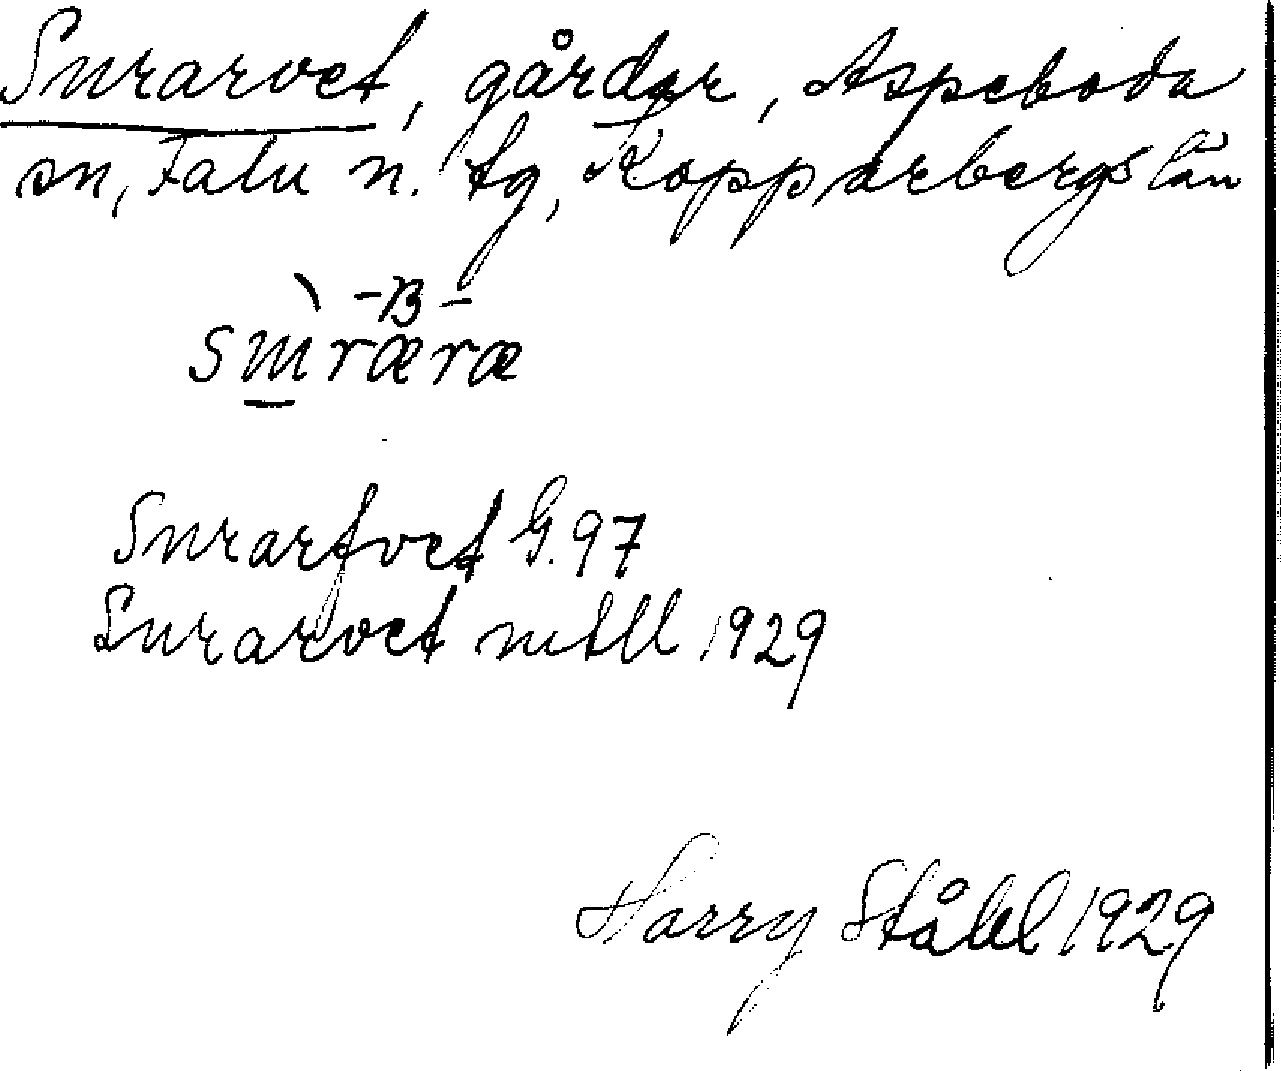 Snrarvet, gårdar, Aspeboda
sn, Falu n. tg, Kopparbergs län
-B-
Snrarfvet G. 97
Snrarvet mtll 1929
Harry Ståhl 1929